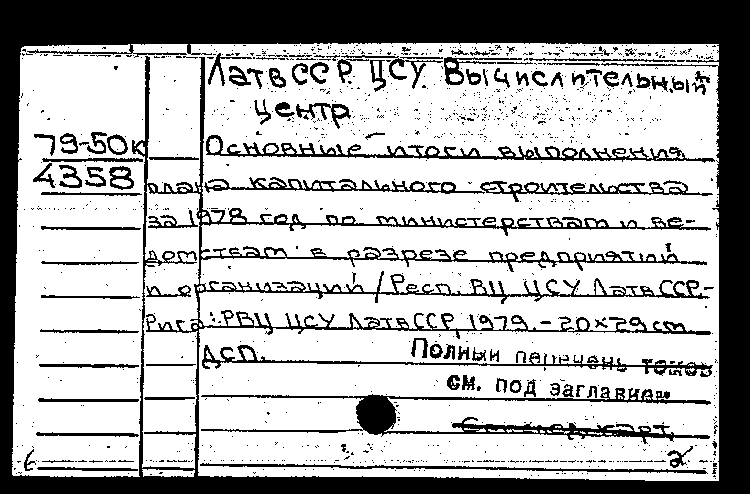 ЛатвССР. ЦСУ. Вычислительный
центр
79-50к Основные итоги выполнения
4358 плана капитального строительства
за 1978 год по министерствам и ве-
домствам в разрезе предприятий
и организаций / Респ. ВЦ ЦСУ ЛатвССР.-
Рига: РВЦ ЦСУ ЛатвССР, 1979. - 20×29 см
ДСП. Полный перечень томов
см. под заглавием
карт.
6 2